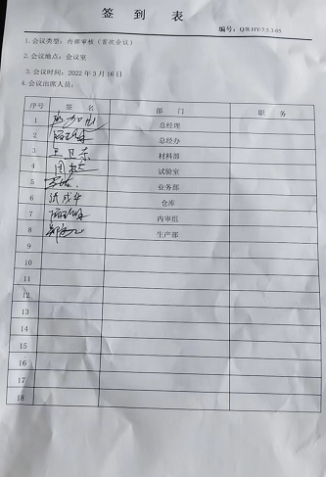 签 到 表
编号：Q/R HY-7.5.3-05
1.会议类型：内部审核（首次会议）
2.会议地点：会议室
3.会议时间：2022年3月16日
4.会议出席人员：
序号 签 名 部 门 职 务
1 总经理
2 总经办
3 材料部
4 试验室
5 业务部
6 仓库
7 内审组
8 生产部
9
10
11
12
13
14
15
16
17
18